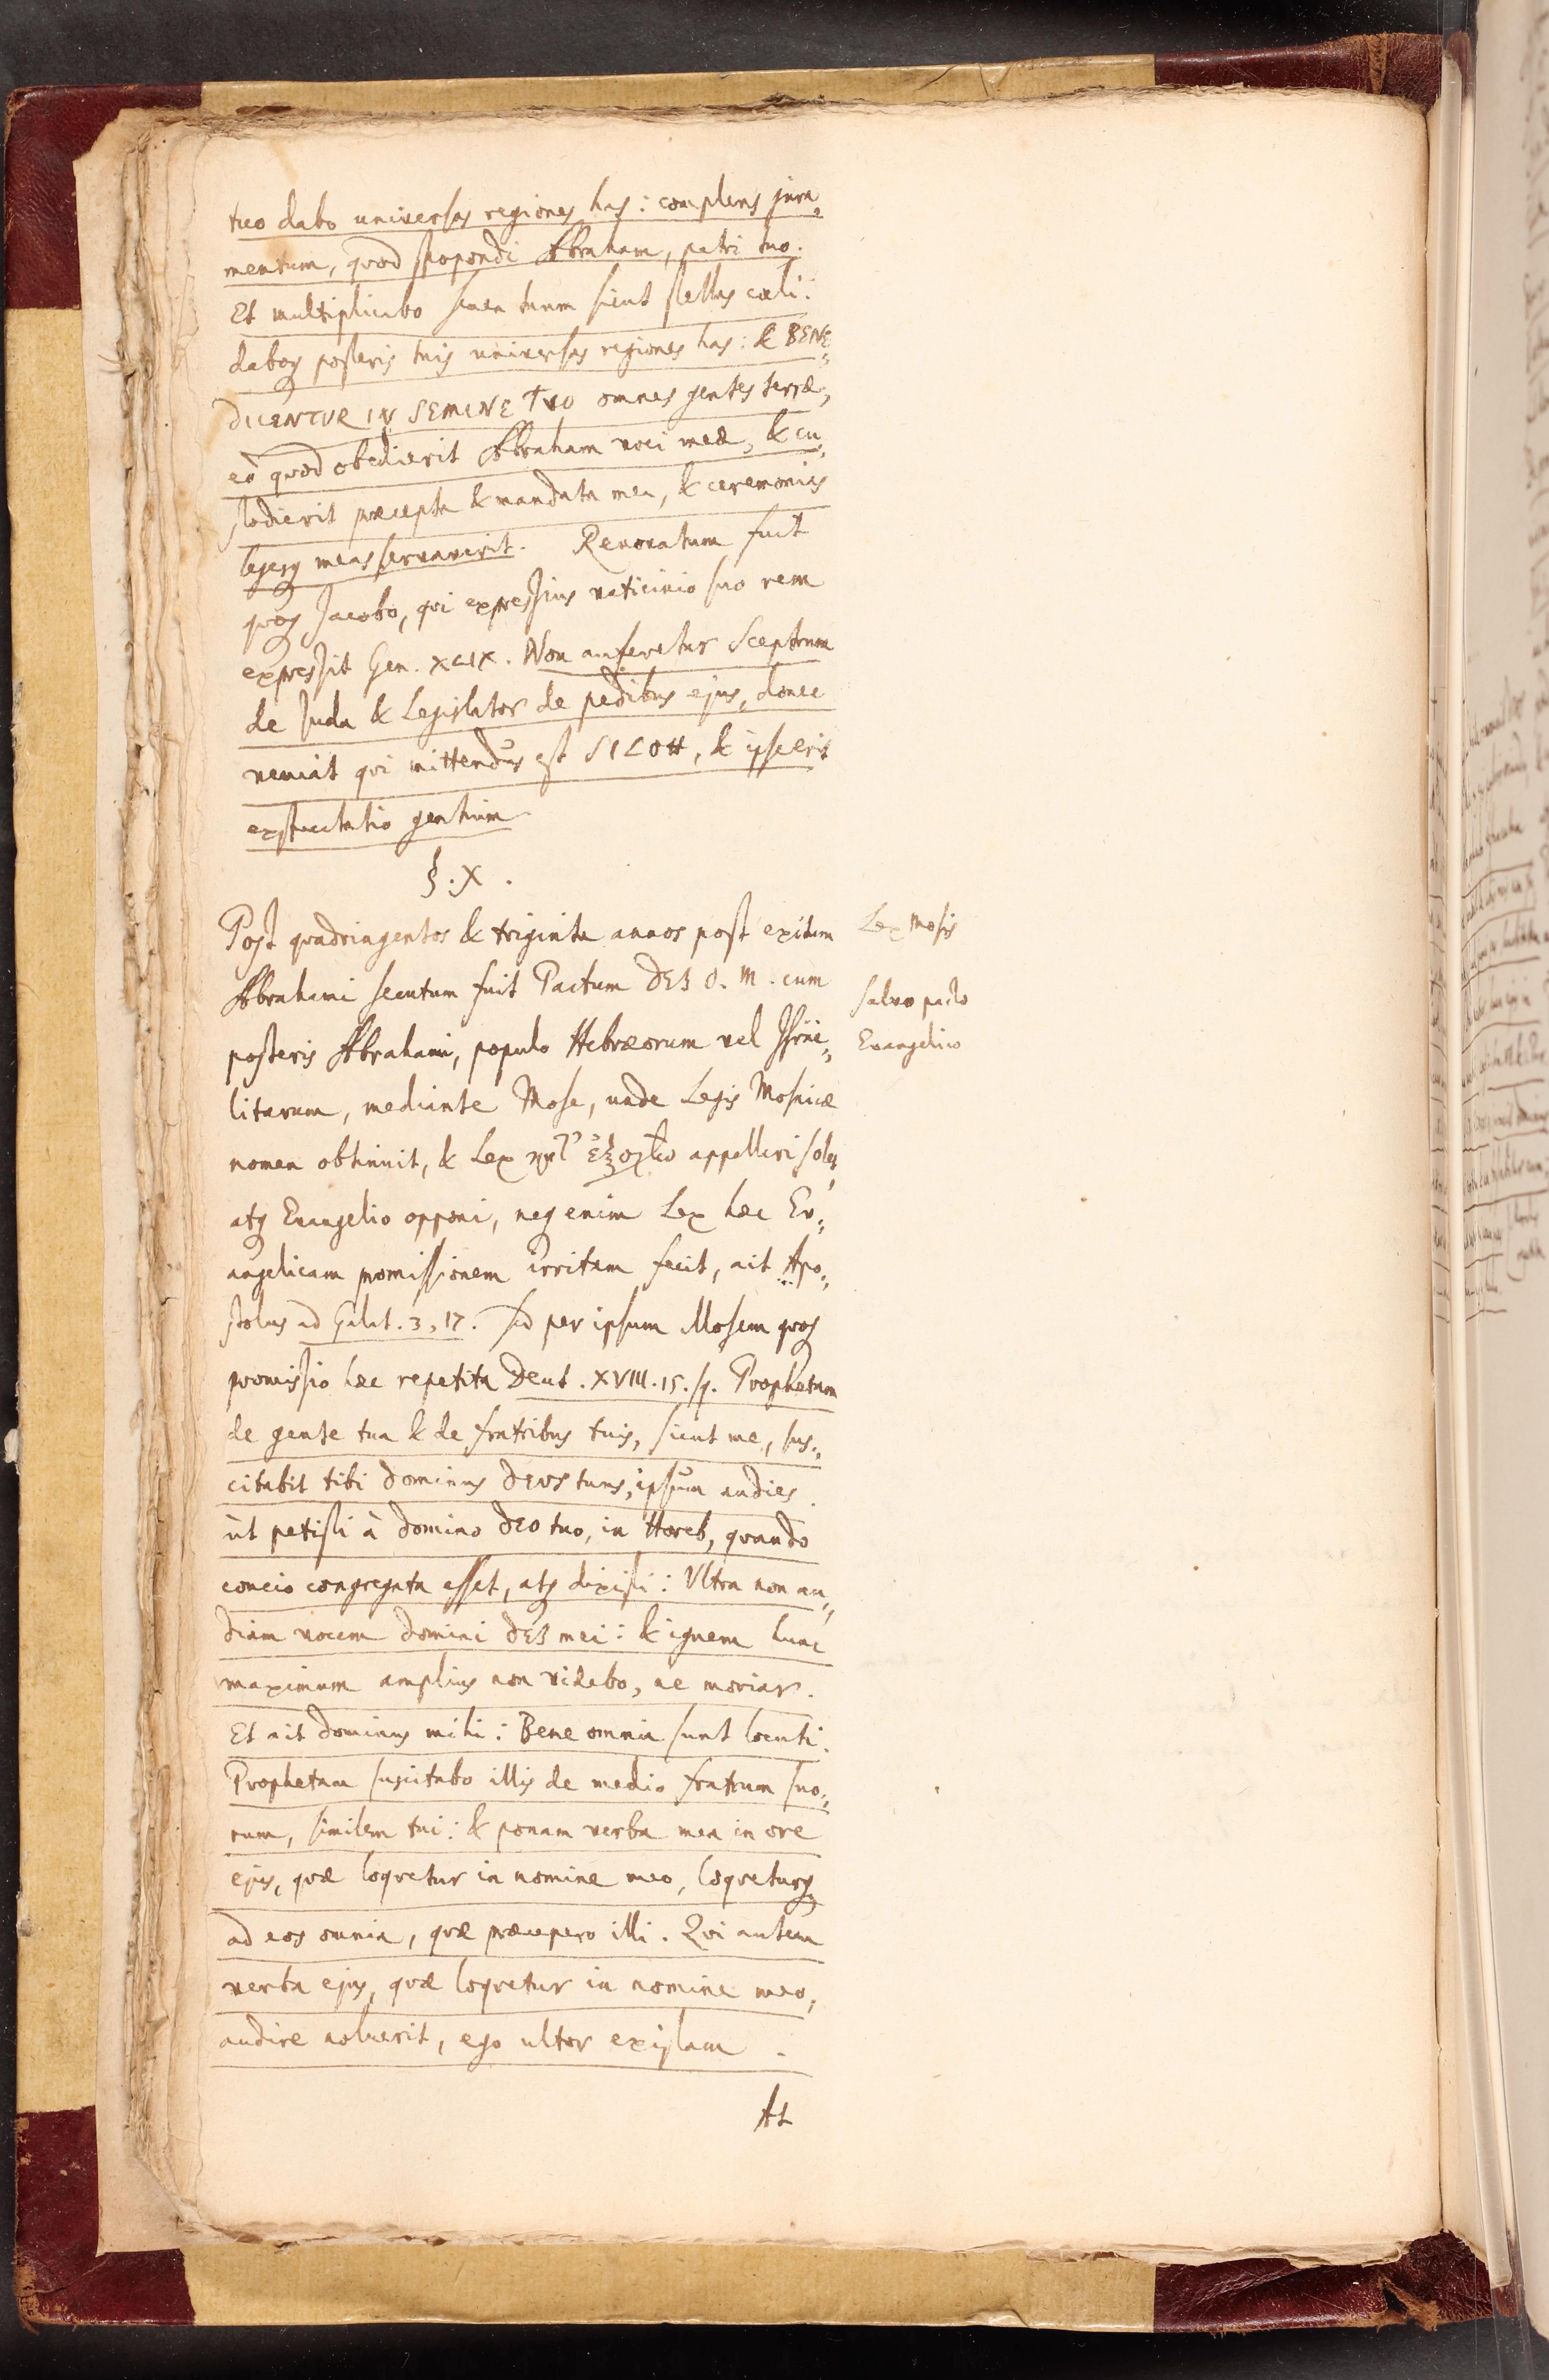 tuo dabo universas regiones has: complens jura„
mentum, quod spopondi Abraham, patri tuo.
Et multiplicabo semen tuum sicut stellas cœli:
dabóq posteris tuis universas regiones has: & BENE„
DICENTUR IN SEMINE TUO omnes gentes terræ,
eò quod obedierit Abraham voci meæ, & cu„
stodierit præcepta & mandata mea, & ceremonias
legesq meas servaverit. Renovatum fuit
quoq Jacobo, qvi expressius vaticinio suo rem
expressit Gen. XLIX. Non auferetur Sceptrum
de Juda & Legislator de pedibus ejus, donec
veniat qvi mittendus est SILOH, & ipse erit
exspectatio gentium
§. X.
Post qvadringentos & triginta annos post exitum
Abrahami secutum fuit Pactum DEI O. M. cum
posteris Abrahami, populo Hebræorum vel Isräe„
litarum, mediante Mose, unde Legis Mosaicæ
nomen obtinuit, & Lex κατ' ἐξοχὴν appellari solet
atq Evangelio opponi, neq enim Lex hæc Ev„
angelicam promissionem irritam fecit, ait Apo„
stolus ad Galat. 3, 17. Sed per ipsum Mosem quoq
promissio hæc repetita Deut. XVIII. 15. sq. Prophetam
de gente tua & de fratribus tuis, sicut me, sus„
citabit tibi dominus DEUS tuus, ipsum audies.
ùt petisti à domino DEO tuo, in Horeb, qvando
concio congregata esset, atq dixisti: Ultra non au„
diam vocem domini DEI mei: & ignem hunc
maximum amplius non videbo, ne moriar.
Et ait dominus mihi: Bene omnia sunt locuti.
Prophetam suscitabo illis de medio fratrum suo„
rum, similem tui: & ponam verba mea in ore
ejus, qvæ loqvetur in nomine meo, loqveturq
ad eos omnia, qvæ præcepero illi. Qvi autem
verba ejus, qvæ loqvetur in nomine meo,
audire noluerit, ego ultor existam.
At
Lex Mosis
salvo pacto
Evangelico